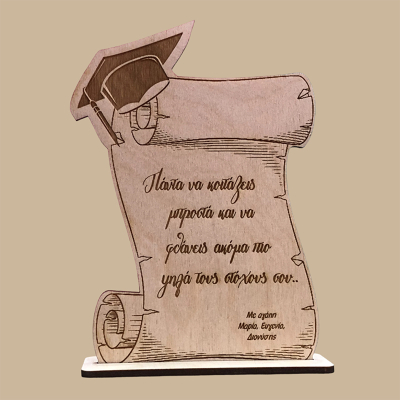 Πάντα να κοιτάζεις
μπροστά και να
φθάνεις ακόμα πιο
ψηλά τους στόχους σου..
Με αγάπη
Μαρία, Ευγενία,
Διονύσης